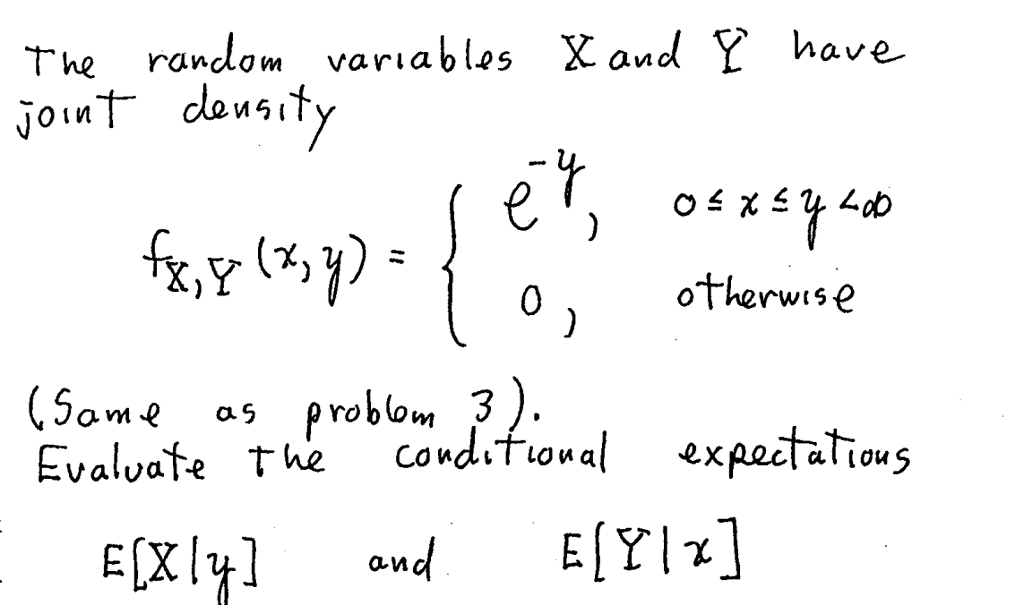 The random variables X and Y have
joint density
f_{X,Y}(x,y) = { e^{-y}, 0 ≤ x ≤ y < ∞
0, otherwise
(Same as problem 3).
Evaluate the conditional expectations
E[X|y] and E[Y|x]